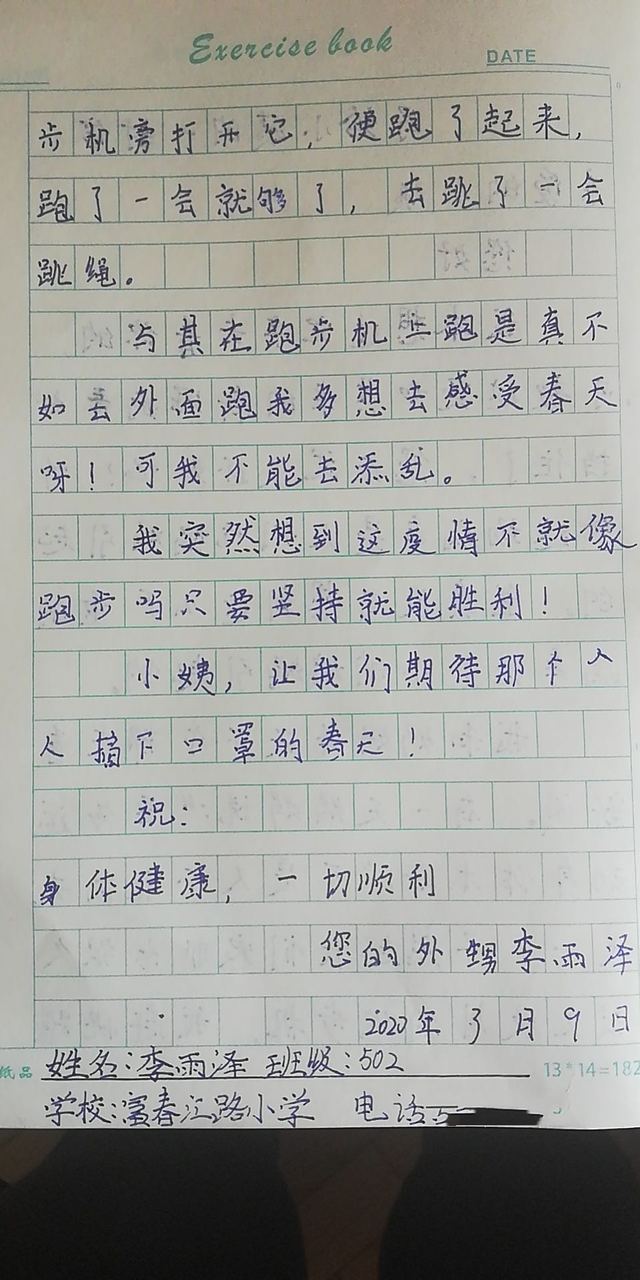 Exercise book
DATE
步机旁打开它，便跑了起来，
跑了一会就够了，去跳了一会
跳绳。
与其在跑步机上跑是真不
如去外面跑我多想去感受春天
呀！可我不能去添乱。
我突然想到这度情不就像
跑步吗只要坚持就能胜利！
小姨，让我们期待那个人
人摘下口罩的春天！
祝：
身体健康，一切顺利
您的外甥李雨泽
2020年3月9日
纸品 姓名：李雨泽 班级：502 13*14=182
学校：富春江路小学 电话：